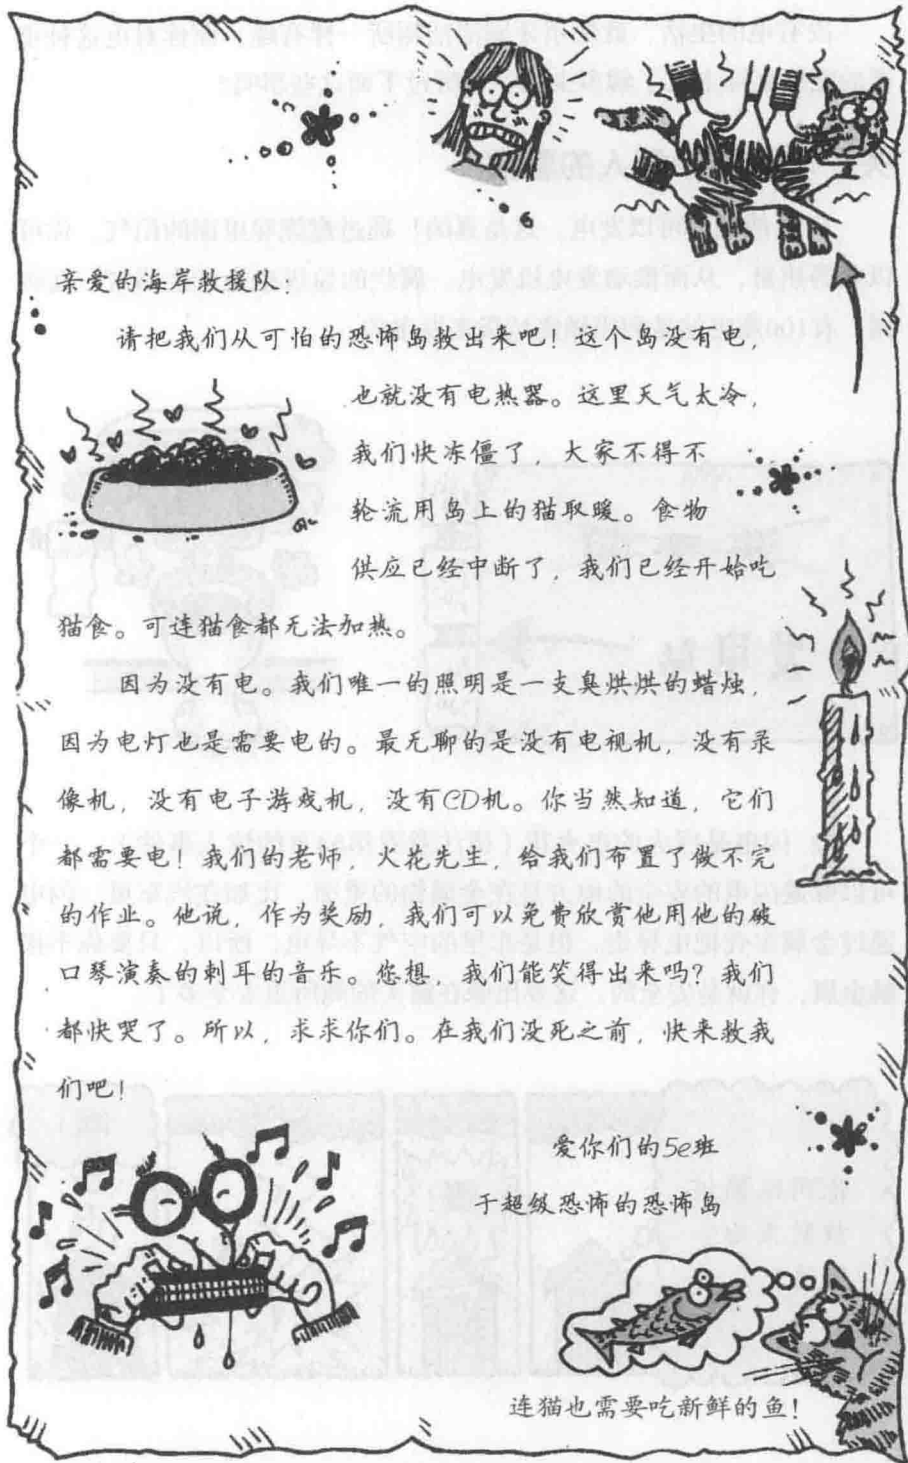 亲爱的海岸救援队：
请把我们从可怕的恐怖岛救出来吧！这个岛没有电，
也就没有电热器。这里天气太冷，
我们快冻僵了，大家不得不
轮流用岛上的猫取暖。食物
供应已经中断了，我们已经开始吃
猫食。可连猫食都无法加热。
因为没有电。我们唯一的照明是一支臭烘烘的蜡烛，
因为电灯也是需要电的。最无聊的是没有电视机，没有录
像机，没有电子游戏机，没有CD机。你当然知道，它们
都需要电！我们的老师，火花先生，给我们布置了做不完
的作业。他说，作为奖励，我们可以免费欣赏他用他的破
口琴演奏的刺耳的音乐。您想，我们能笑得出来吗？我们
都快哭了。所以，求求你们。在我们没死之前，快来救我
们吧！
爱你们的5e班
于超级恐怖的恐怖岛
连猫也需要吃新鲜的鱼！